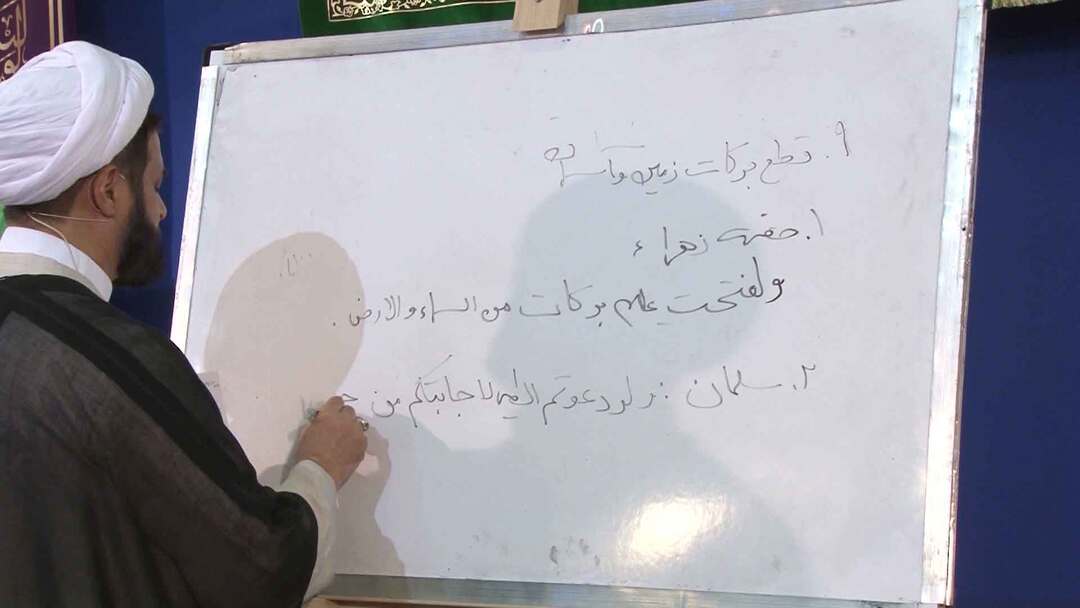 ۹. قطع برکات زمین و آسمان
۱. حضرت زهراء
و لفتحت علیهم برکات من السماء و الارض.
۲. سلمان: و لو دعوتم الطیر لاجابتکم من